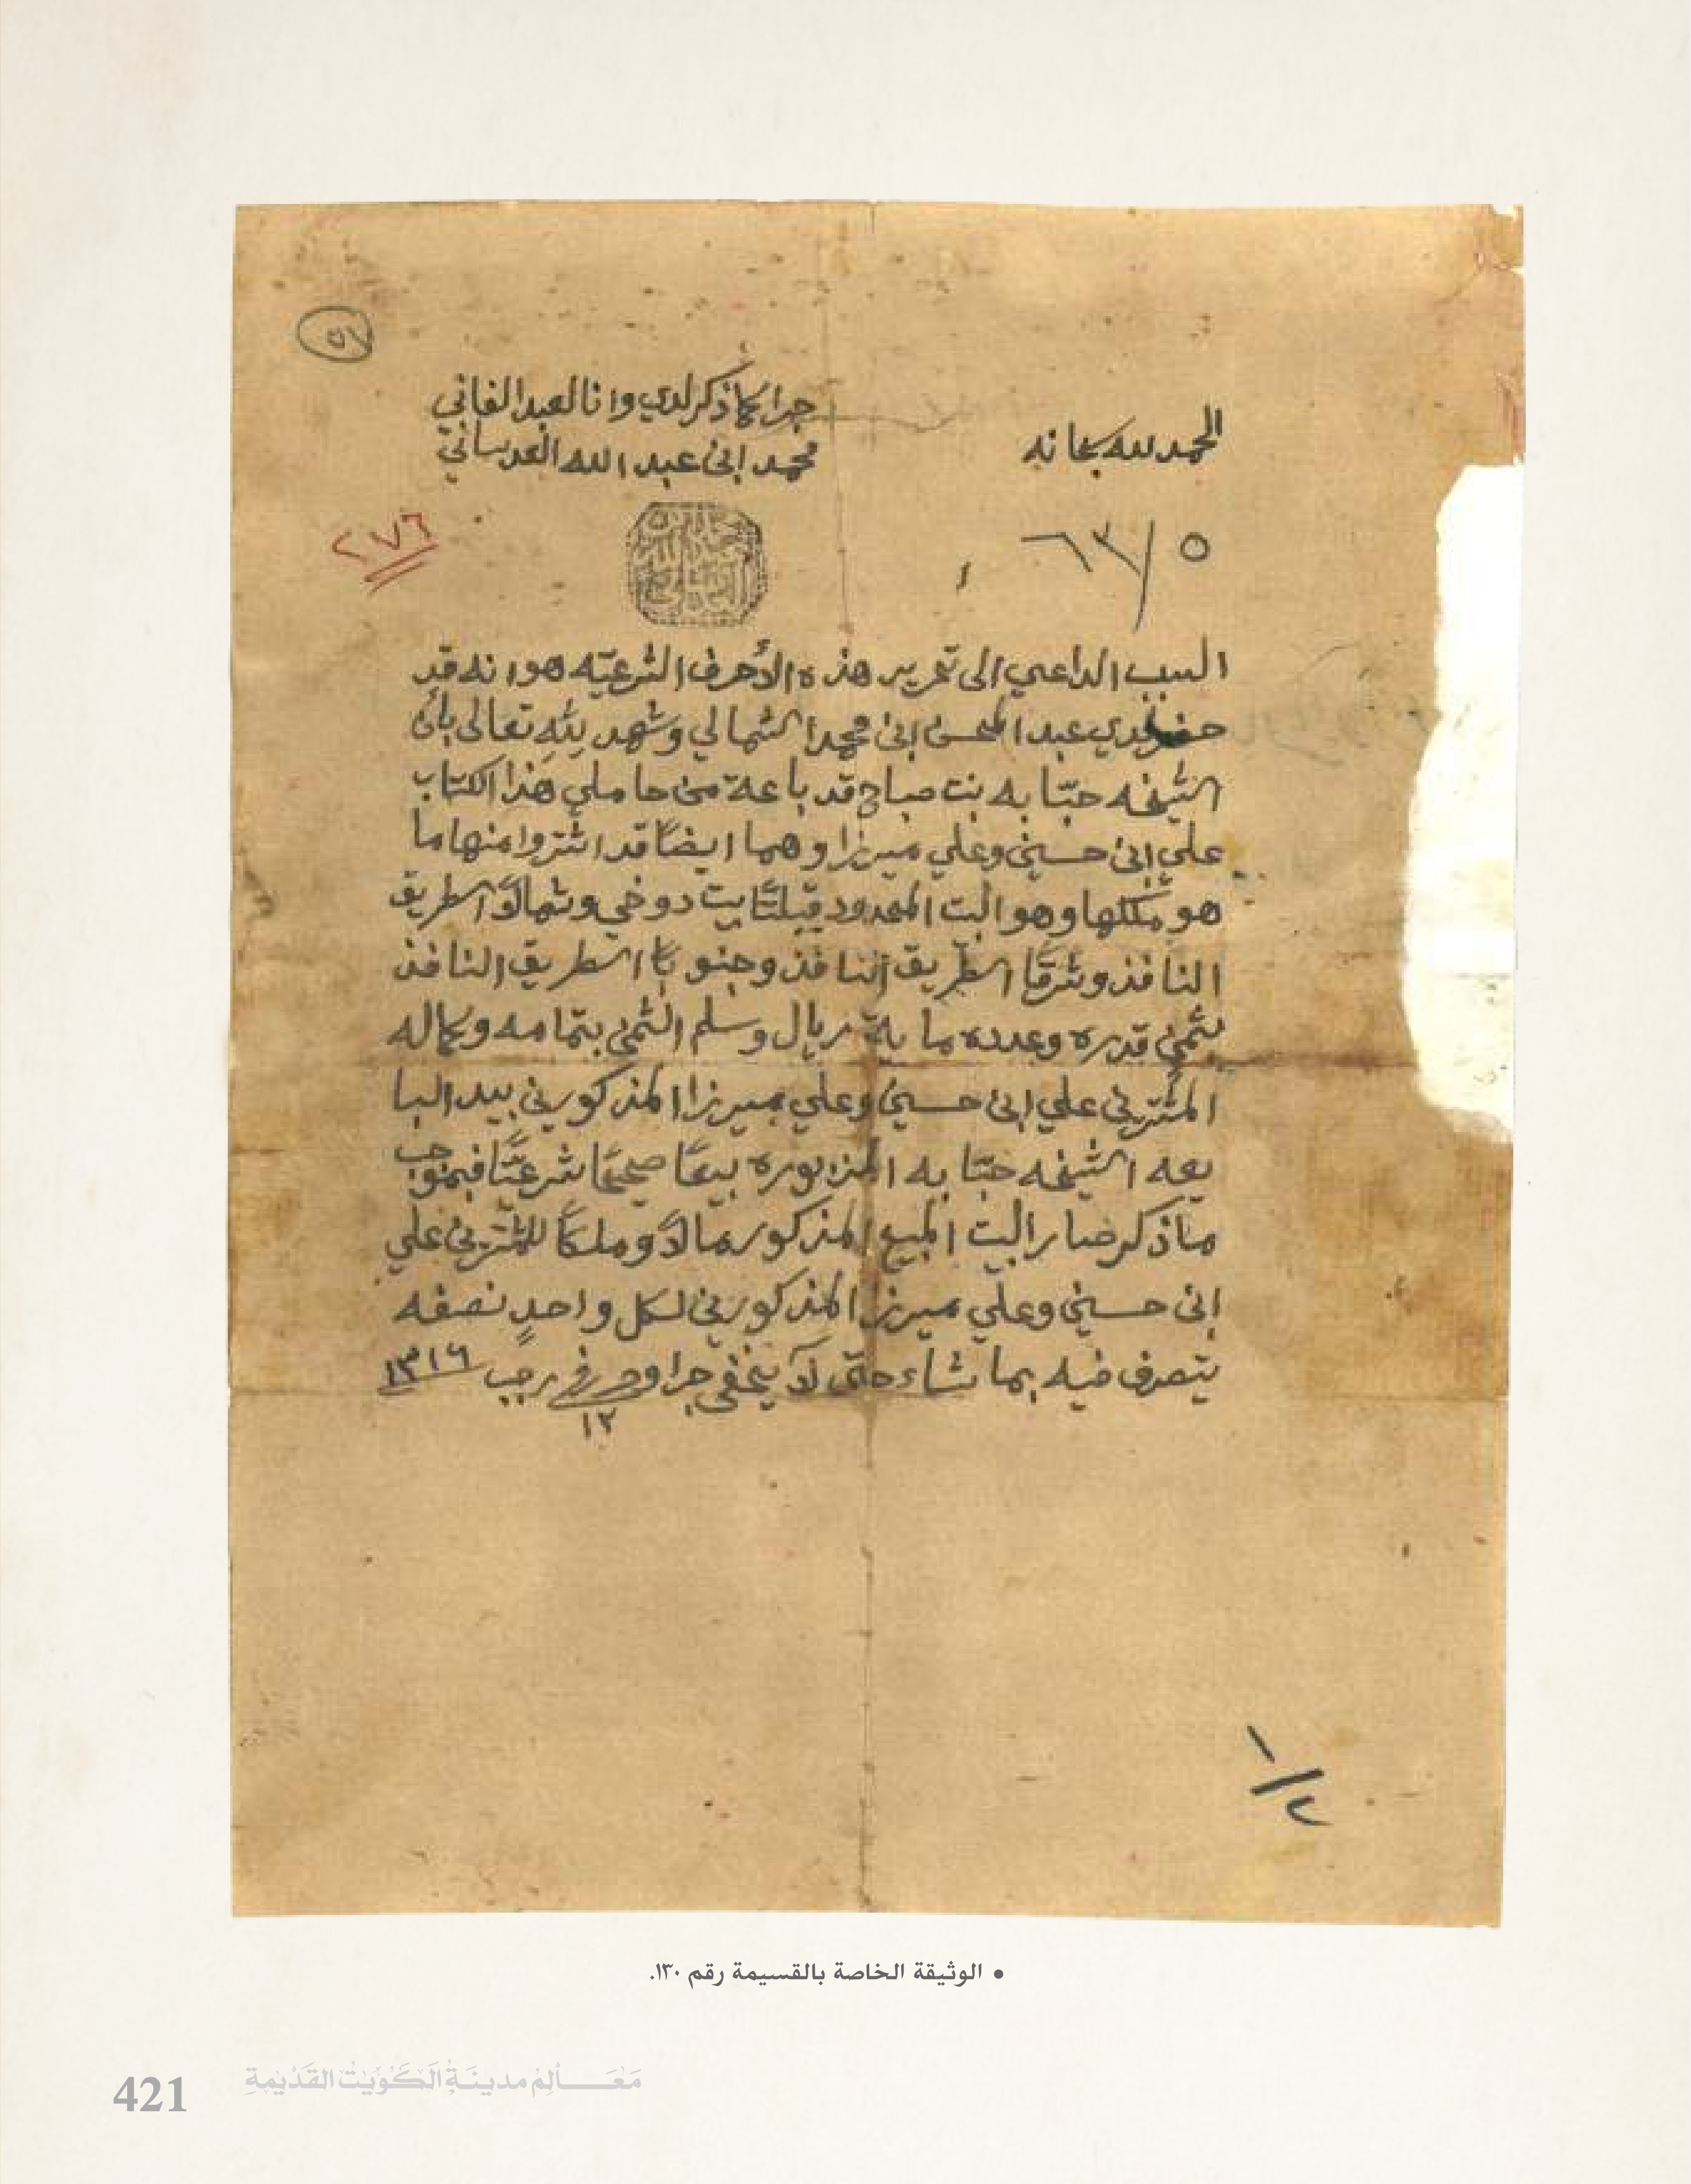 ٥١
جرا كما ذكر لدي وانا العبد الفاني
محمد ابن عبد الله العدساني
الحمد لله سبحانه
٢٧٦
٥/٦٣
السبب الداعي الى تحرير هذه الأحرف الشرعيّه هو انه قد
حضر لدي عبد المحسن ابن محمد الشمالي وشهد لله تعالى بأن
الشيخه حبّابه بنت صباح قد باعة من حاملي هذا الكتاب
علي ابن حسين وعلي ميرزا وهما ايضًا قد اشتروا منها ما
هو مُلكها وهو البيت المحدود قبلتًا بيت دوخي وشمالاً الطريق
النافذ وشرقًا الطريق النافذ وجنوبًا الطريق النافذ
بثمن قدره وعدده ماية ريال وسلم الثمن بتمامه وكماله
المشترين علي ابن حسين وعلي ميرزا المذكورين بيد البا
يعه الشيخه حبّابه المزبوره بيعًا صحيحًا شرعيًّا فبموجب
ما ذكر صار البيت المبيع المذكور مالاً وملكًا للمشترين علي
ابن حسين وعلي ميرزا المذكورين لكل واحدٍ نصفه
يتصرف فيه بما شاء حتى لا يخفى جرا وحرر في رجب ١٣١٦
١٢
١/٢
• الوثيقة الخاصة بالقسيمة رقم ١٣٠.
421 مَعَالِمُ مدينَةِ الكُوَيْتِ القَدِيمَةِ